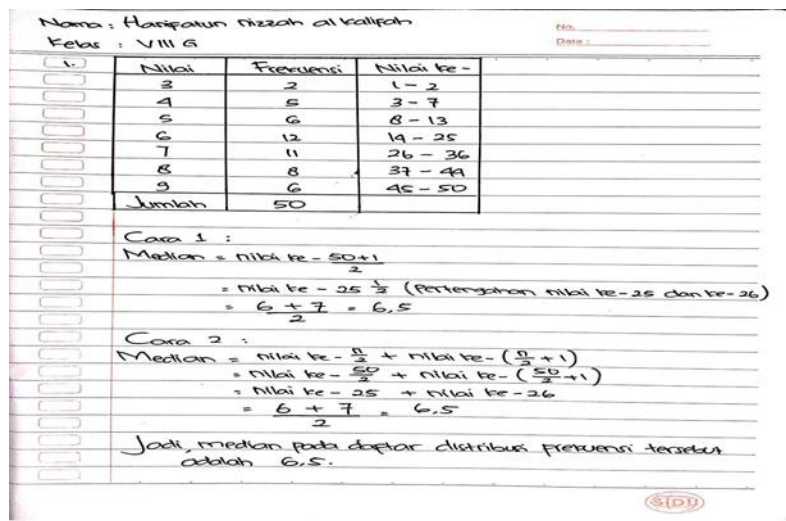 Nama : Hanifatun nizzah al kalifah
No.
Kelas : VIII G
Date :
1. Nilai Frekuensi Nilai ke-
3 2 1 - 2
4 5 3 - 7
5 6 8 - 13
6 12 14 - 25
7 11 26 - 36
8 8 37 - 44
9 6 45 - 50
Jumlah 50
Cara 1 :
Median = nilai ke - 50+1/2
= nilai ke - 25 1/2 (Pertengahan nilai ke-25 dan ke-26)
= 6 + 7/2 = 6,5
Cara 2 :
Median = nilai ke - n/2 + nilai ke - (n/2 + 1)
= nilai ke - 50/2 + nilai ke - (50/2 + 1)
= nilai ke - 25 + nilai ke - 26
= 6 + 7/2 = 6,5
Jadi, median pada daftar distribusi frekuensi tersebut
adalah 6,5.
SIDU